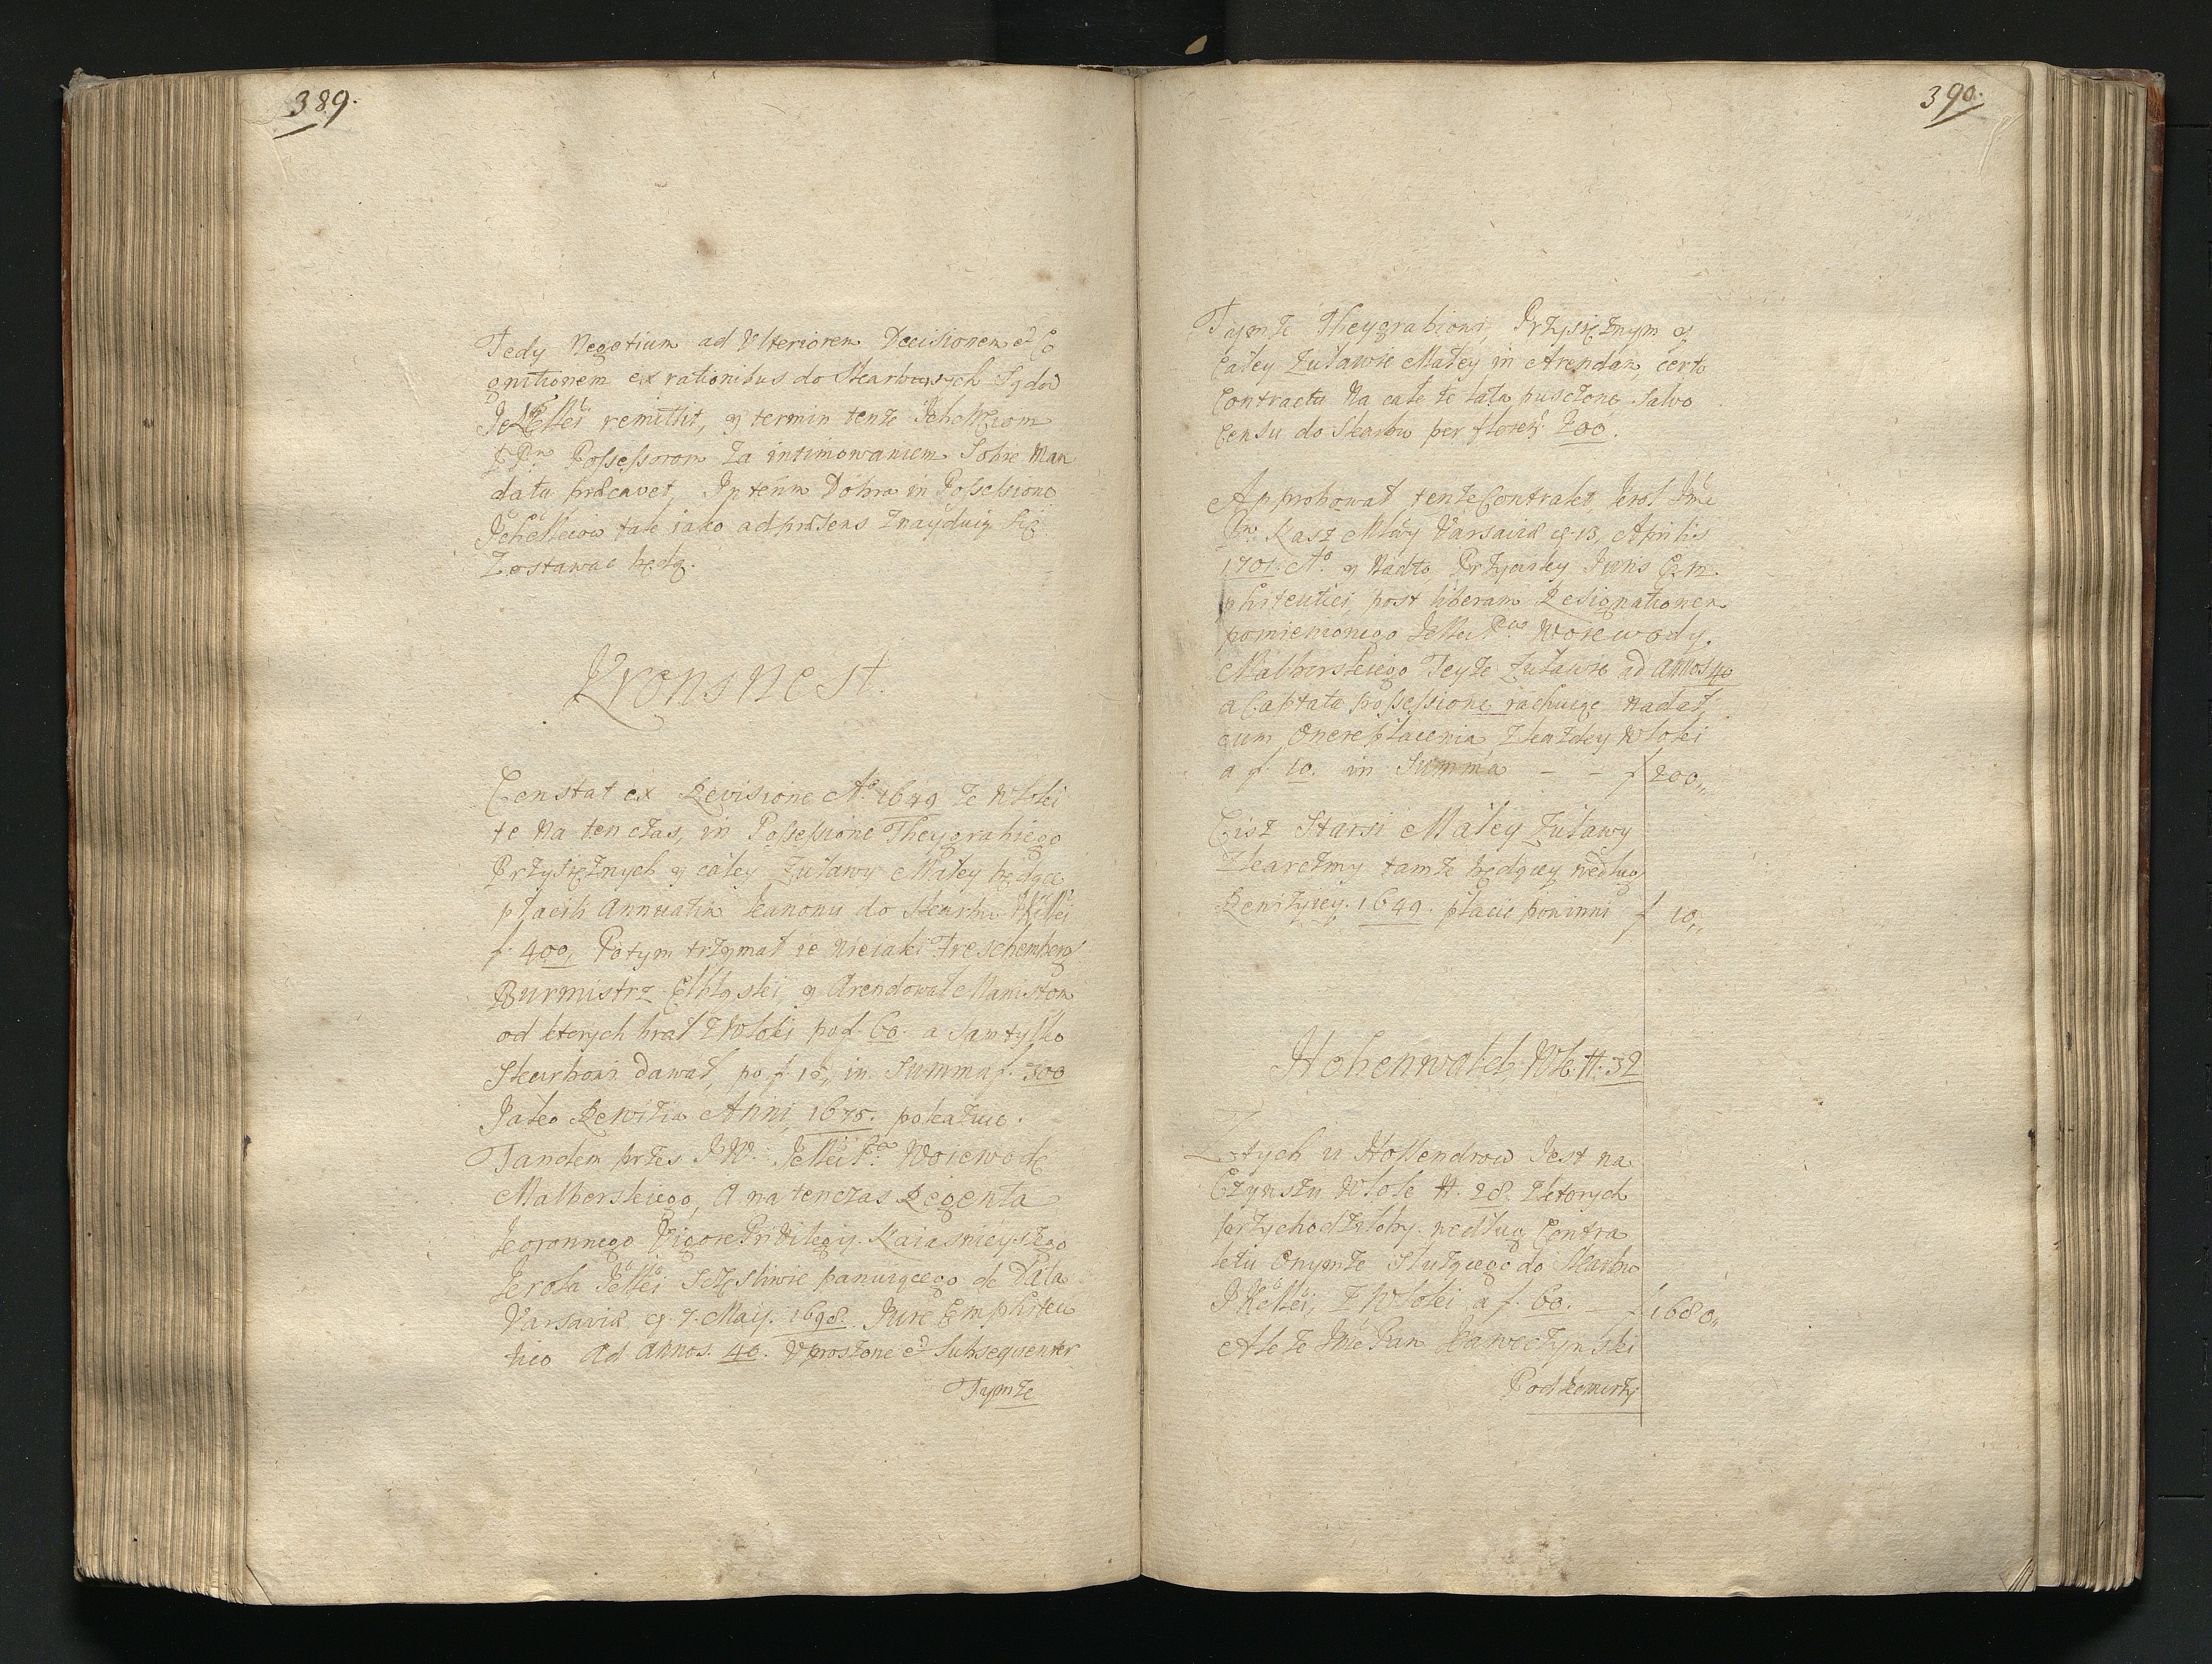 389.
Tedy Negotium ad Ulteriorem Decisionem et Co
gnitionem ex rationibus do Skarbowych Sądow
JKMci remittit, y termin tenże Ichmciom
PPn Possessorom za intimowaniem Sobie Man
datu præcavet, Interim Dobra in Possessione
Ichmciow tak iako ad præsens znayduią się
Zostawac będą.
Kronsnest.
Constat ex Revisione Ao 1649 że Włoki
te na ten czas, in Possessione Theygrabiego
Przysiężnych y całey Żuławy Małey będące
płacili Annuatim kanonu do skarbu JKMci
f. 400, Potym trzymał ie nieiaki Treschemberg
Burmistrz Elbląski, y Arendował Maniston
od ktorych brał z Włoki po f. 60. a sam tylko
Skarbowi dawał, po f. 15,, in Summa f. 300
Jako Rewizia Anni, 1675. pokazuie.
Tandem przez JW. JeMci Pa Woiewodę
Malborskiego, A na tenczas Regenta
koronnego Vigore Privilegij Naiasnieyszego
krola JeMci Sczęsliwie panuiącego de Data
Varsaviæ q. 7. Maij. 1698. Jure Emphiteu
tico Ad Annos. 40. Uproszone et Subsequenter
Tymże
390.
Tymże Theygrabiowi, Przysiężnym y
Całey Żuławie Małey in Arendam, certo
Contractu Na całe te lata pusczone Salvo
Censu do Skarbu per floren: 200.
Approbował tenże Contrakt krol Jmć
Pn. Nasz Młwy Varsaviæ q. 13, Aprilis
1701. Ao. y Nadto Przywiley Juris Em
phiteutici, post liberam Resignationem
pomienionego JeMci Pna Woiewody
Malborskiego Teyże Żuławie ad Annos 40
a Captata possessione rachuiąc Nadał,
cum Onere płacenia, z każdey Włoki
a f. 10. in Summa - - f 200,,
Ciż Starsi Małey Żuławy
Z karczmy tamże będącey według
Rewizyiey. 1649. płacic powinni f 10,,
Hohenwald, Wł. N. 32
Z tych u Hollendrow Jest na
Czynszu Włok N. 28. z ktorych
przychodziłoby według Contra
ktu Onymże służącego do Skarbu
JKMci, z Włoki a f. 60. - f 1680,,
Ale że Jmć Pan Kaweczynski
Podkomorzy